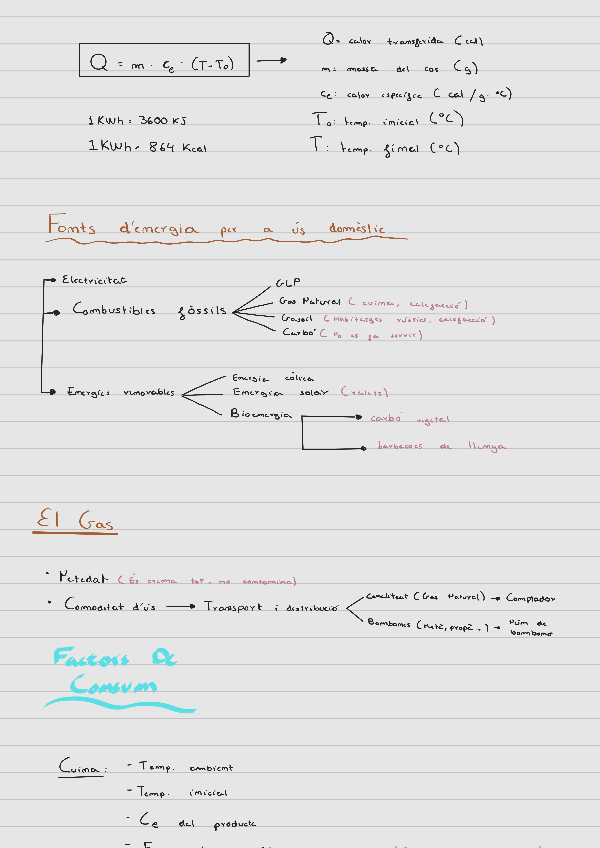 Q = m · ce · (T-To)
Q= calor transferida (cal)
m= massa del cos (g)
ce: calor específica ( cal /g · °C)
1KWh = 3600 KJ
To: temp. inicial (°C)
1KWh = 864 Kcal
T: temp. final (°C)
Fonts d'energia per a ús domèstic
Electricitat
Combustibles fòssils
GLP
Gas Natural ( cuina, calefacció)
Gasoil ( Habitatges rústics, calefacció)
Carbó ( No es fa servir)
Energies renovables
Energia eòlica
Energia solar
Bioenergia
carbó vegetal
barbacoes de llenya
El Gas
· Netedat ( Es crema tot, no contamina)
· Comoditat d'ús → Transport i distribució
Canalitzat (Gas Natural) → Comptador
Bombones (Butà, propà..) → Núm de bombona
Factors De
Consum
Cuina: - Temp. ambient
- Temp. inicial
- Ce del producte